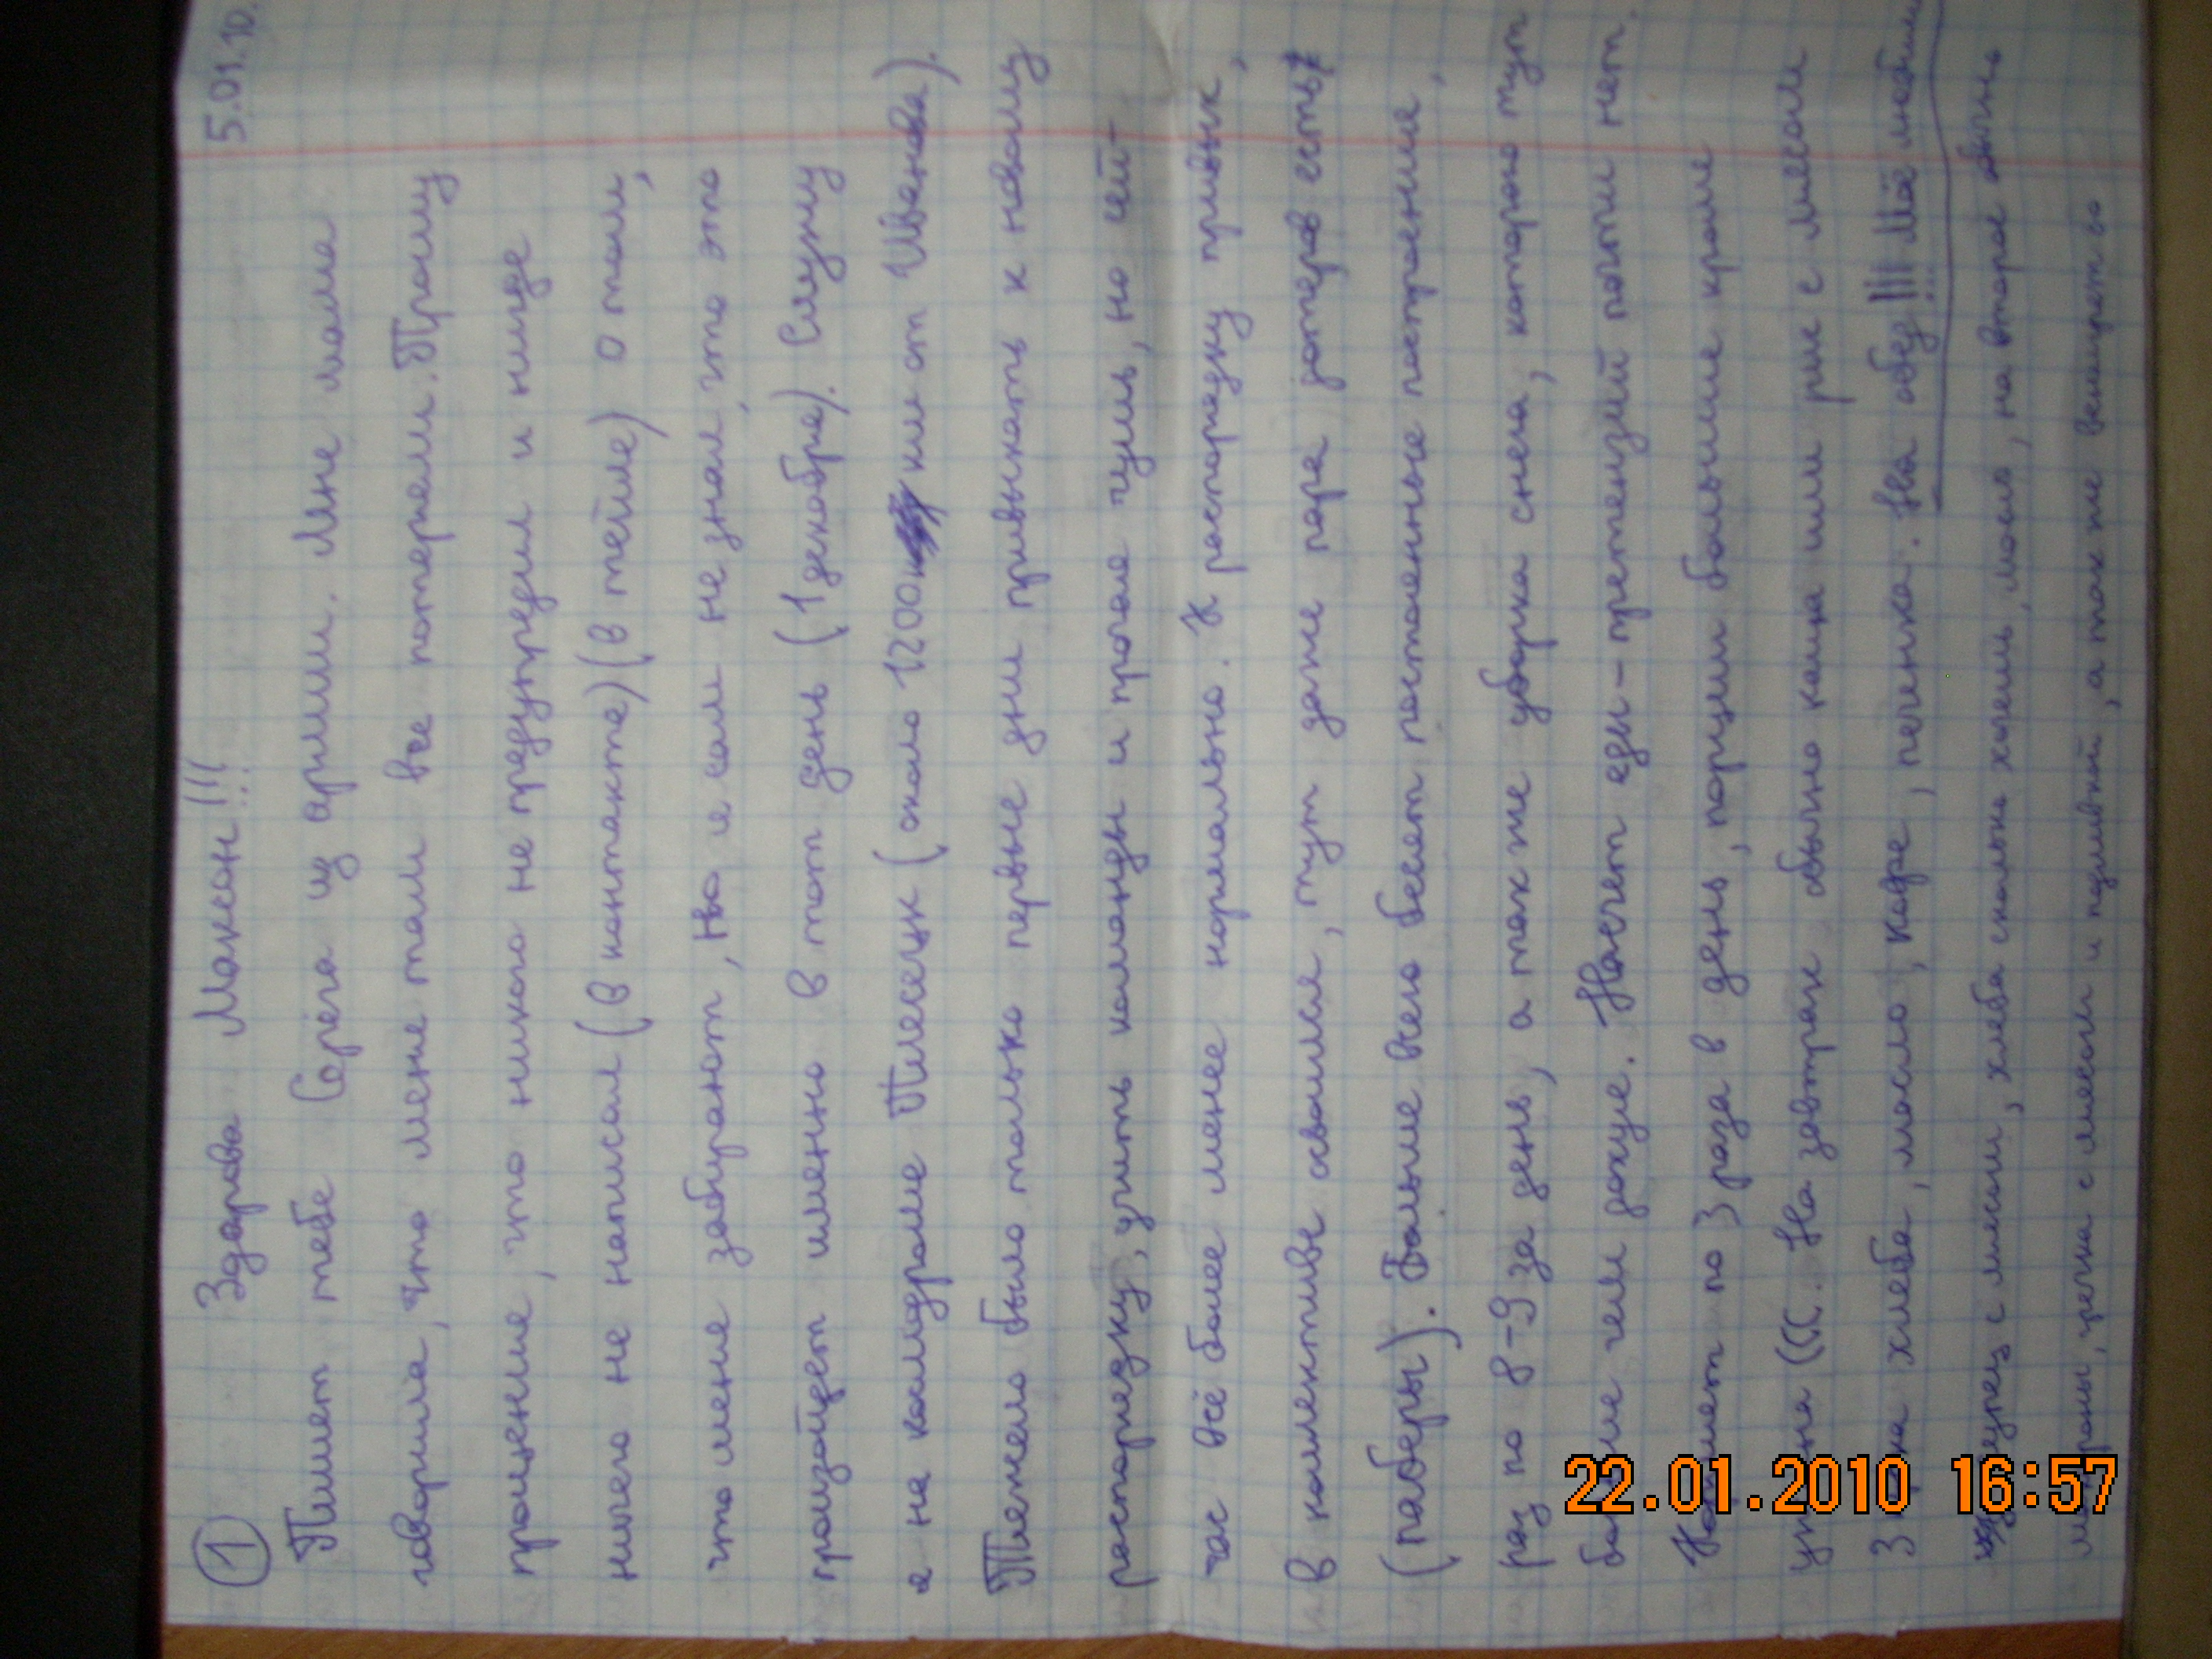 5.01.10.
① Здарова Максон!!!
Пишет тебе Серёга из армии. Мне мама
говорила, что меня там все потеряли. Прошу
прощение, что никого не предупредил и нигде
ничего не написал (в контакте) (в тейле) о том,
что меня забирают, но я сам не знал, что это
произойдет именно в тот день (1 декабря). Служу
я на космодроме Плесецк (около 1200 км от Иванова).
Тяжело было только первые дни привыкать к новому
распорядку, учить команды и прочая чушь, но сей-
час всё более менее нормально. К распорядку привык,
в коллективе освоился, тут даже пара дотеров есть
(раберы). Больше всего бесят постоянные построение,
раз по 8-9 за день, а так же уборка снега, которого тут
больше чем дохуя. Насчет еды - претензий почти нет.
Хавает по 3 раза в день, порции большие кроме
ужина (((. На завтрак обычно каша или рис с мясом
3 хлеба, масло, кофе, печенка. На обед!!! Моё любим
с мясом, хлеба сколько хочешь, масло, на второе обычно
макароны, гречка с мясом и подливкой, а так же
22.01.2010 16:57